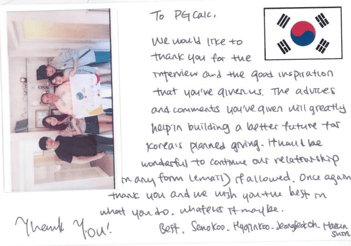 To PG Calc.
We would like to
thank you for the
interview and the good inspiration
that you've given us. The advices
and comments you've given will greatly
help in building a better future for
Korea's planned giving. It would be
wonderful to continue our relationship
in any form (email) if allowed. Once again
thank you and we wish you the best in
what you do, whatever it may be.
Thank You!
Best,